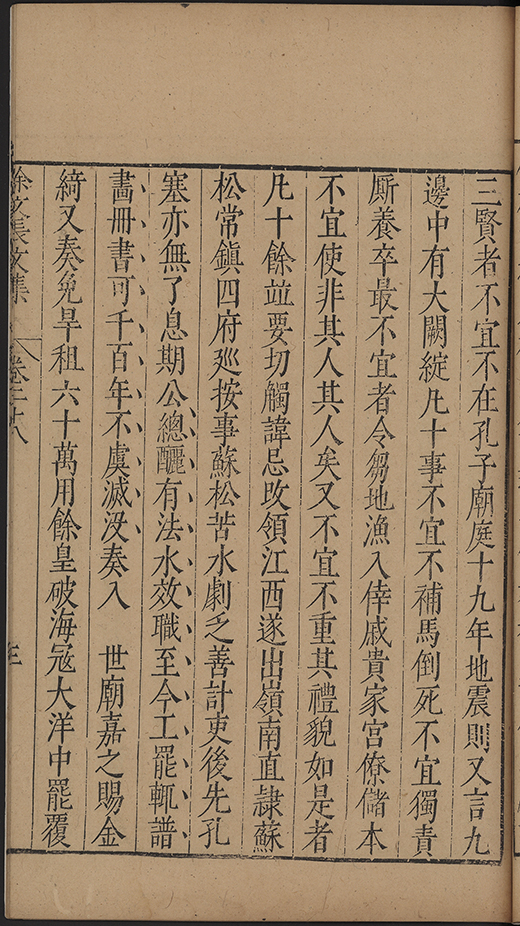 三賢者不宜不在孔子廟庭十九年地震則又言九
邊中有大闕綻凡十事不宜不補馬倒死不宜獨責
厮養卒最不宜者令芻地漁入倖戚貴家宮僚儲本
不宜使非其人其人矣又不宜不重其禮貌如是者
凡十餘竝要切觸諱忌攺領江西遂出嶺南直隷蘇
松常鎮四府廵按事蘇松苦水劇乏善計吏後先孔
塞亦無了息期公總釃有法水效職至今工罷輒譜
畵冊書可千百年不虞滅沒奏入 世廟嘉之賜金
綺又奏免旱租六十萬用餘皇破海㓂大洋中罷覆
徐文長文集 卷二十八 三